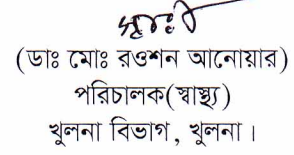 (ডাঃ মোঃ রওশন আনোয়ার)
পরিচালক(স্বাস্থ্য)
খুলনা বিভাগ, খুলনা।